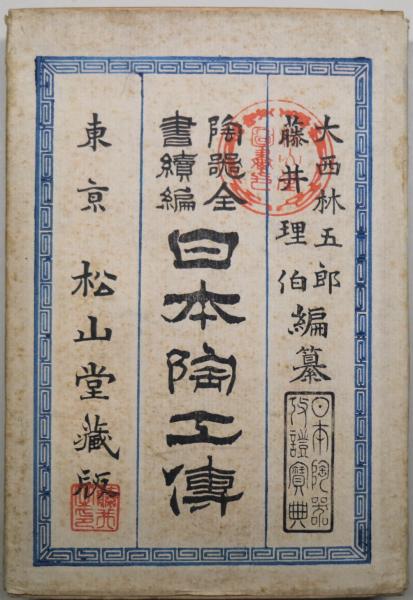 大西林五郎
藤井理伯
編纂
日本陶器
攷證寶典
陶器全
書續編
日本陶工傳
東京 松山堂藏版